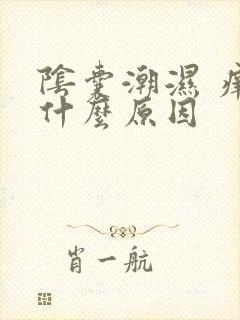 陰囊潮濕
什麼原因
肖一航